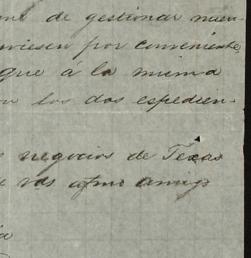 de gestionar nuev-
viesen por conveniente,
que á la misma
los dos espedien-
negocios de Texas
vds afmo amigo